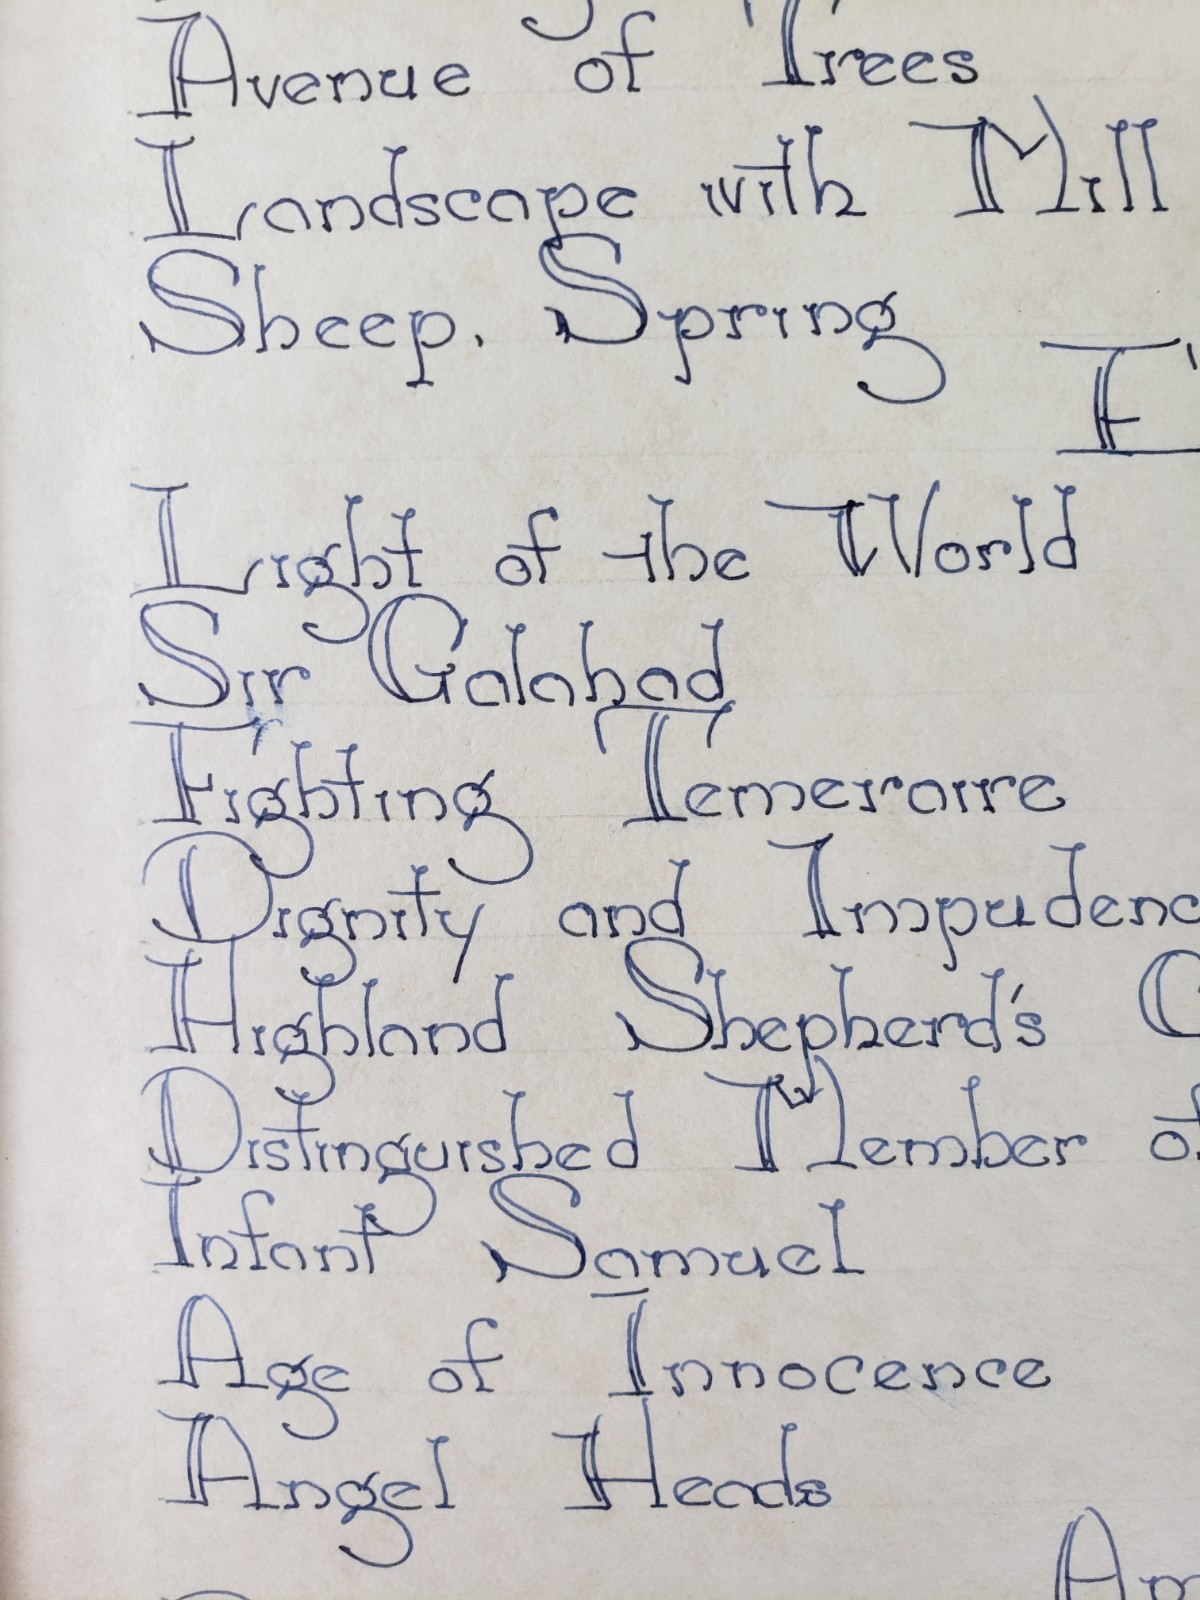 Avenue of Trees
Landscape with Mill
Sheep. Spring
Light of the World
Sir Galahad
Fighting Temeraire
Dignity and Impudenc
Highland Shepherd's
Distinguished Member of
Infant Samuel
Age of Innocence
Angel Heads